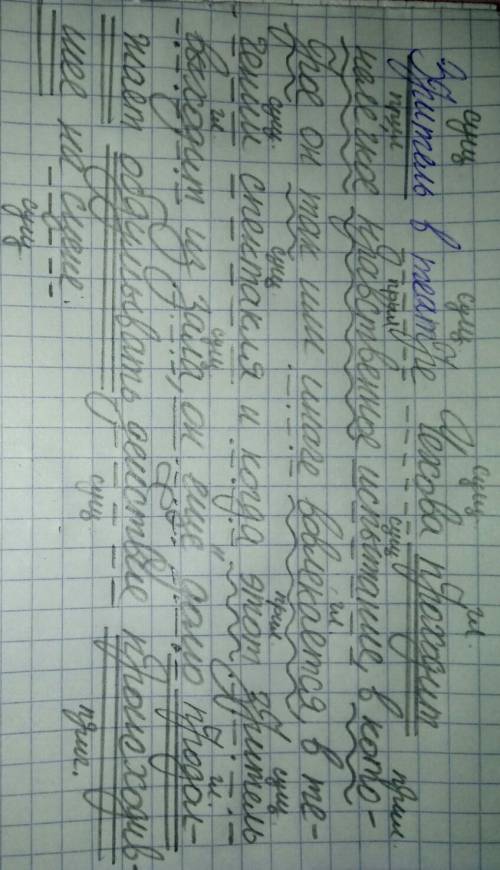 сущ сущ сущ гл.
Зритель в театре Чехова проходит
прил прил сущ прил.
нелегкое нравственное испытание, в кото-
гл.
рое он так или иначе вовлекается, в те-
сущ. сущ. прил. сущ
чении спектакля и когда этот зритель
гл сущ гл.
выходит из зала, он еще долго продол-
жает обдумывать действие происходив-
сущ прич.
шее на сцене.
сущ